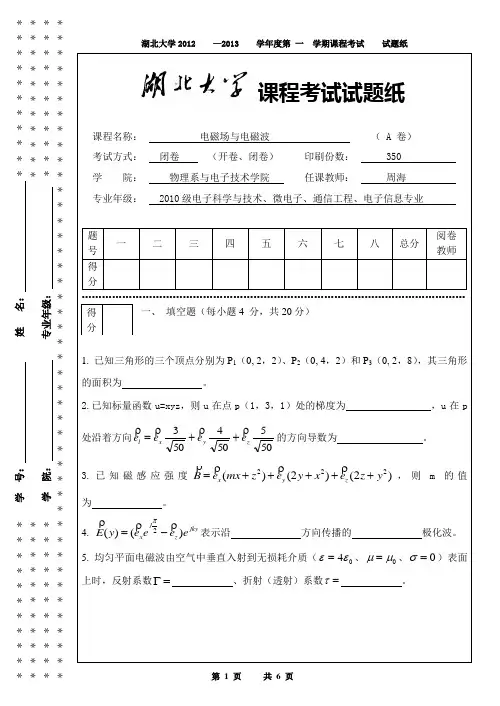 湖北大学2012 —2013 学年度第 一 学期课程考试 试题纸
湖北大学 课程考试试题纸
课程名称： 电磁场与电磁波 （ A 卷）
考试方式： 闭卷 （开卷、闭卷） 印刷份数： 350
学 院： 物理系与电子技术学院 任课教师： 周海
专业年级： 2010级电子科学与技术、微电子、通信工程、电子信息专业
题号 一 二 三 四 五 六 七 八 总分 阅卷教师
得分
得分
一、 填空题（每小题4 分，共20分）
1. 已知三角形的三个顶点分别为P₁（0, 2, 2）、P₂（0, 4, 2）和P₃（0, 2, 8），其三角形
的面积为 。
2.已知标量函数u=xyz，则u在点p（1，3，1）处的梯度为 ，u在p
处沿着方向e_l = e_x 3/√50 + e_y 4/√50 + e_z 5/√50 的方向导数为 。
3. 已知磁感应强度 B = e_x(mx + z²) + e_y(2y + x²) + e_z(2z + y²)，则m的值
为 。
4. E(y) = (e_x e^{jπ/2} − e_z)e^{jky} 表示沿 方向传播的 极化波。
5. 均匀平面电磁波由空气中垂直入射到无损耗介质（ε = 4ε₀、μ = μ₀、σ = 0）表面
上时，反射系数Γ = 、折射（透射）系数τ = 。
姓 名：
专业年级：
学 号：
学 院：
第 1 页 共 6 页